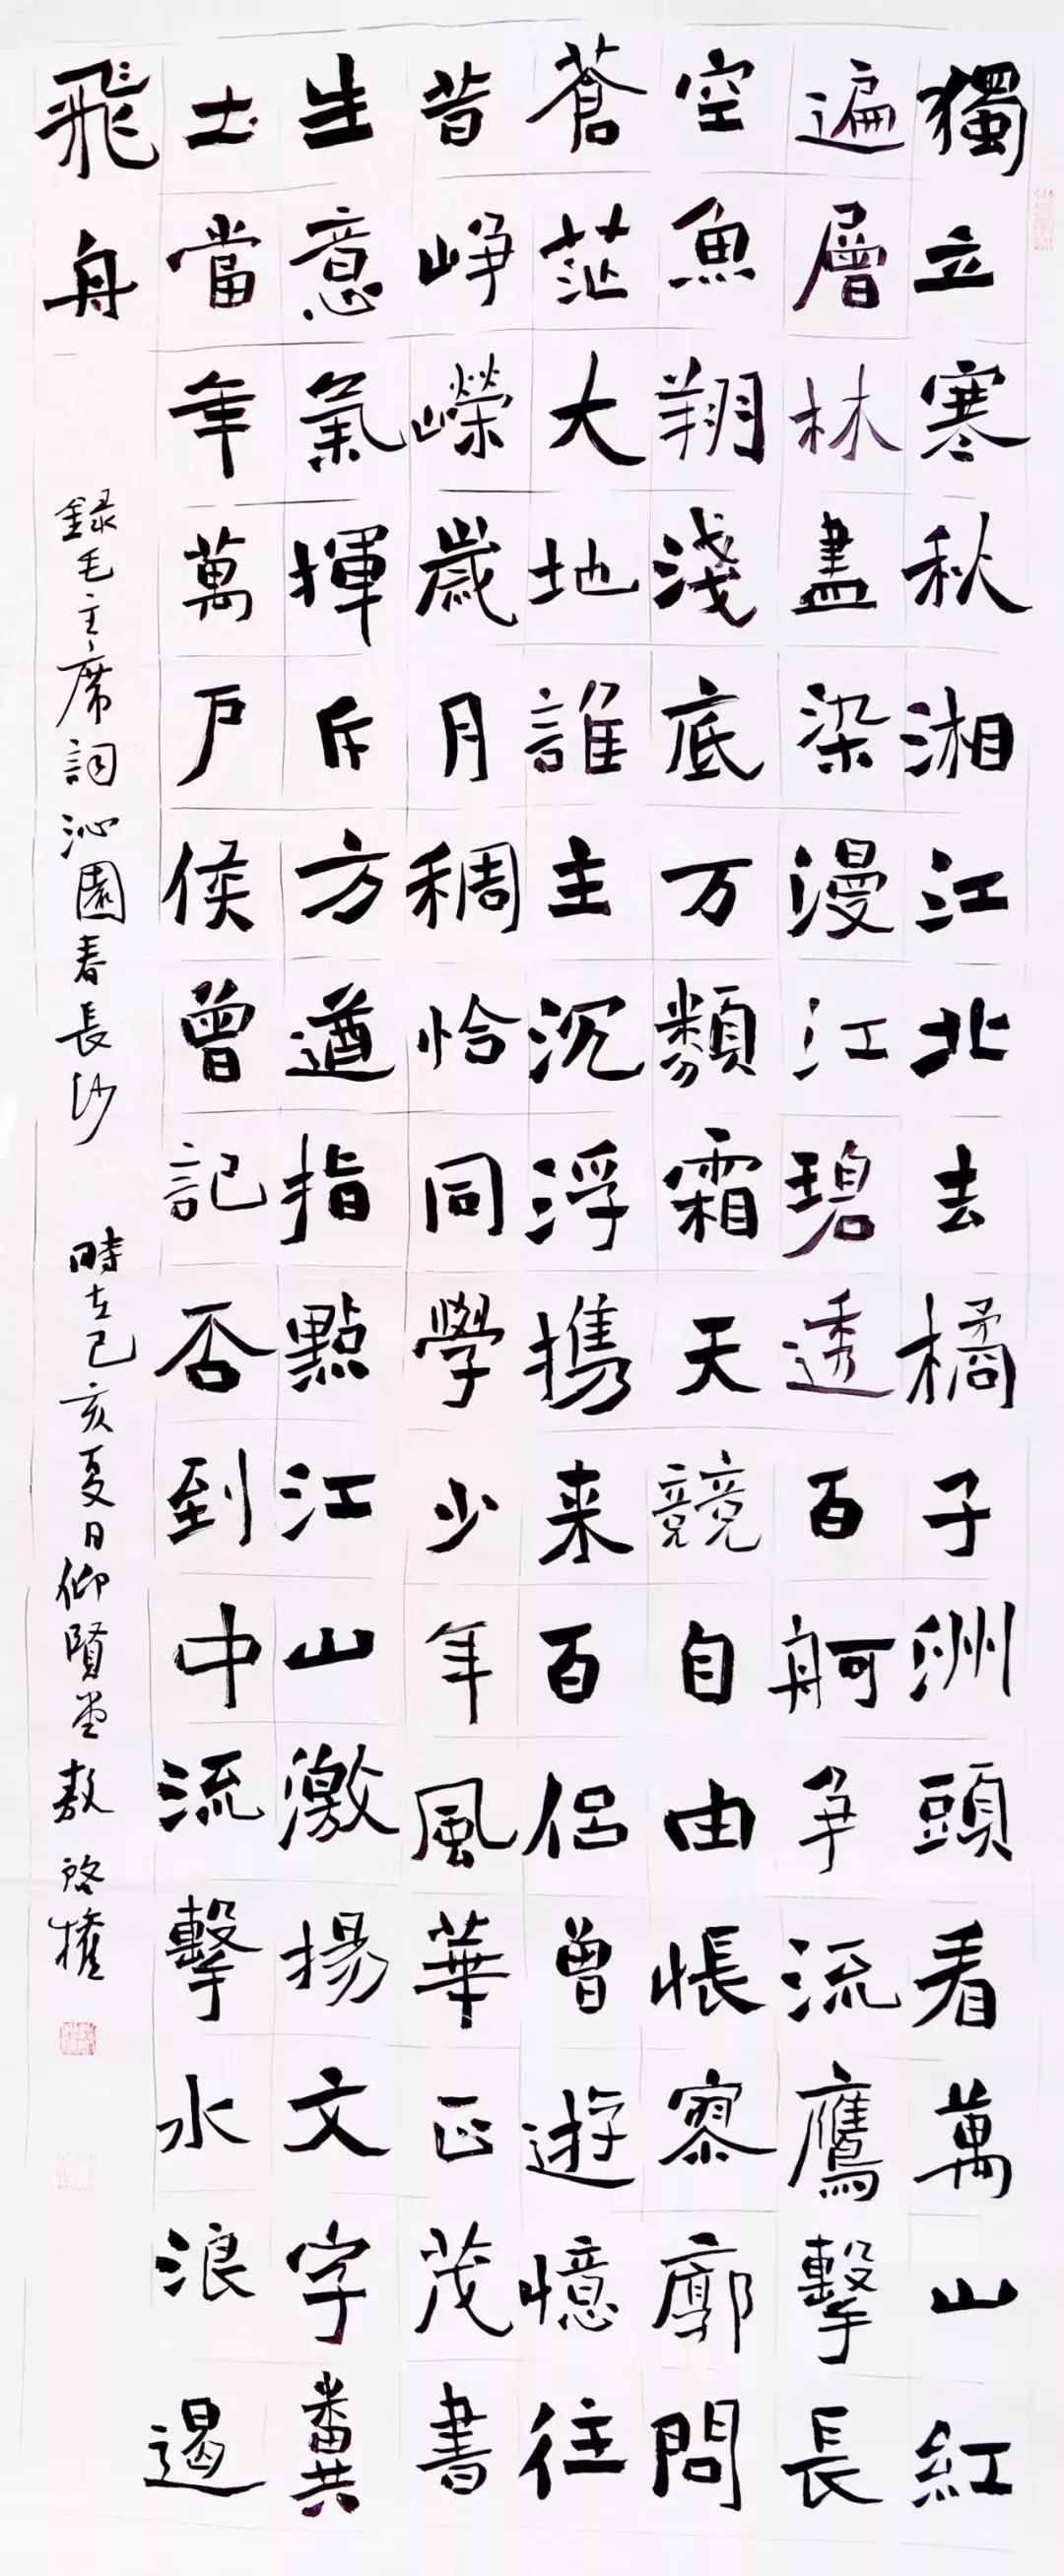 獨立寒秋湘江北去橘子洲頭看萬山紅
遍層林盡染漫江碧透百舸争流鷹擊長
空魚翔淺底万類霜天競自由悵寥廓問
蒼茫大地誰主沉浮携来百侶曾遊憶往
昔崢嶸歲月稠恰同學少年風華正茂書
生意氣揮斥方遒指點江山激揚文字糞
土當年萬戶侯曾記否到中流擊水浪遏
飛舟
錄毛主席詞沁園春長沙 時在己亥夏日仰賢堂敖啓